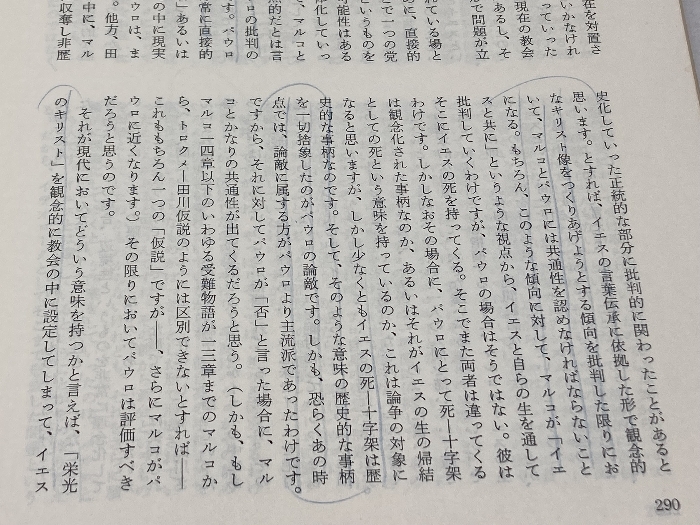 在を対置さ
いかなけれ
っていった
現在の教会
あるし、そ
で問題が立
れている場と
めに、直接的
こで一つの党
というものを
可能性はある
体化していっ
、マルコと
点的だとは言
ロの批判の
す。パウロ
常に直接的
」あるいは
の中に現実
ウロは、ま
。他方、田
中に、マル
収奪し非歴
史化していった正統的な部分に批判的に関わったことがあると
思います。とすれば、イエスの言葉伝承に依拠した形で観念的
なキリスト像をつくりあげようとする傾向を批判した限りにお
いて、マルコとパウロには共通性を認めなければならないこと
になる。もちろん、このような傾向に対して、マルコが「イエ
スと共に」というような視点から、イエスと自らの生を通して
批判していくわけですが、パウロの場合はそうではない。彼は
そこにイエスの死を持ってくる。そこでまた両者は違ってくる
わけです。しかしなおその場合に、パウロにとって死―十字架
は観念化された事柄なのか、あるいはそれがイエスの生の帰結
としての死という意味を持っているのか、これは論争の対象に
なると思いますが、しかし少なくともイエスの死―十字架は歴
史的な事柄なのです。そして、そのような意味の歴史的な事柄
を一切捨象したのがパウロの論敵です。しかも、恐らくあの時
点では、論敵に属する方がパウロより主流派であったわけです。
ですから、それに対してパウロが「否」と言った場合に、マル
コとかなりの共通性が出てくるだろうと思う。（しかも、もし
マルコ一四章以下のいわゆる受難物語が一三章までのマルコか
ら、トロクメ―田川仮説のようには区別できないとすれば――
これももちろん一つの「仮説」ですが――、さらにマルコがパ
ウロに近くなります。）その限りにおいてパウロは評価すべき
だろうと思うのです。
それが現代においてどういう意味を持つかと言えば、「栄光
のキリスト」を観念的に教会の中に設定してしまって、イエス
290